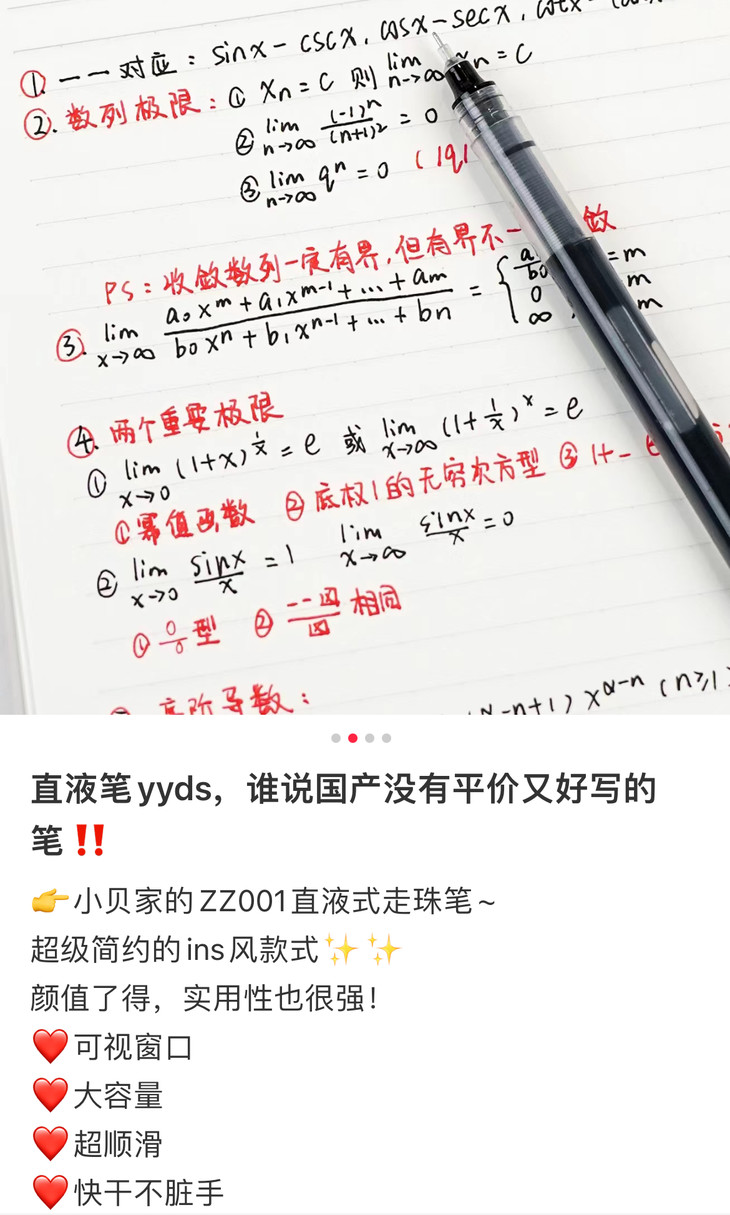 ①. 一一对应：sinx－cscx，cosx－secx，cotx－
②. 数列极限：① Xn = C 则 lim n→∞ Xn = C
② lim n→∞ (-1)^n/(n+1)² = 0
③ lim n→∞ q^n = 0 (|q|
PS：收敛数列一定有界，但有界不一 敛
③. lim x→∞ (a₀x^m + a₁x^(m-1) + … + am)/(b₀x^n + b₁x^(n-1) + … + bn) = { a/b₀ = m
0 m
∞ m
④. 两个重要极限
① lim x→0 (1+x)^(1/x) = e 或 lim x→∞ (1+1/x)^x = e
①幂值函数 ②底权1的无穷次方型 ③1+－
② lim x→0 sinx/x = 1 lim x→∞ sinx/x = 0
① 0/0 型 ② 相同
高阶导数：
-n+1) x^(α-n) (n≥1
直液笔yyds，谁说国产没有平价又好写的
笔‼️
👉小贝家的ZZ001直液式走珠笔～
超级简约的ins风款式✨✨
颜值了得，实用性也很强！
❤️可视窗口
❤️大容量
❤️超顺滑
❤️快干不脏手